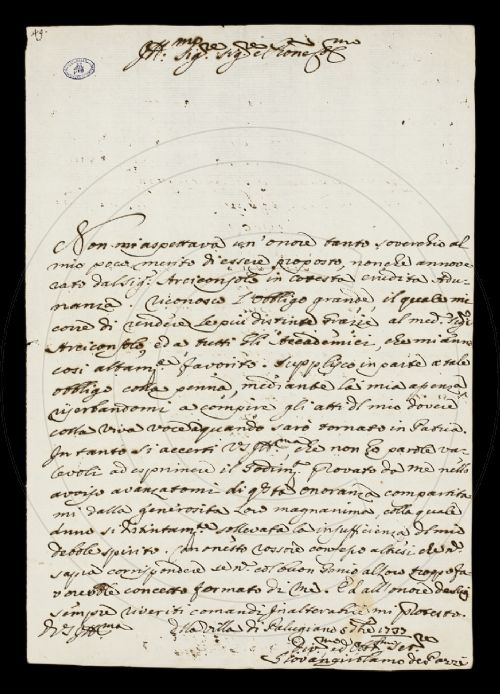 49.
Ill.mo Sig.re Sig.re et
Non mi aspettava un'onore tanto soverchio al
mio poco merito di essere proposto, nonche annove-
rato dal Sig.r Arciconsolo in cotesta erudita Adu-
nanza. Riconosco l'obligo grande, il quale mi
corre di rendere le più distinte grazie al med.
Arciconsolo, ed a tutti gli Accademici, che mi anno
così altam.e favorito. Supplisco in parte a tale
obligo colla penna, mediante la mia
riserbandomi a compire gli atti di mio dovere
colla viva voce quando sarò tornato in Patria.
In tanto si accerti VS Ill.ma, che non ho parole va-
levoli ad esprimere il provato da me nello
avviso avanzatomi di q.sta onoranza compartita
mi dalla generosità Loro magnanima, colla quale
anno sì distintam.e sollevata la insufficienza di mio
debole spirito. confesso altresì che n.
saprò corrispondere se n. col buon Genio al loro troppo fa
vorevole concetto formato di me. Ed all'onore de Suoi
sempre riveriti comandi inalterabile mi protesto.
Di VS Ill.ma Dalla Villa di 1733
Div.mo ed Obb.mo Ser.re
Giovangirolamo de Pazzi